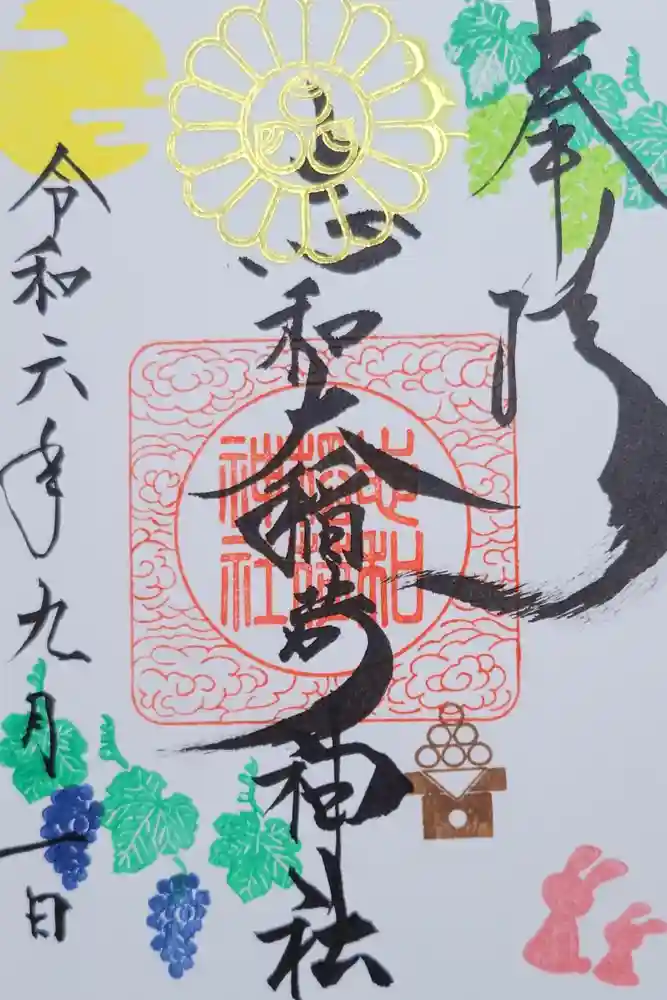 奉拝
志和大稲荷神社
志和
稲荷
神社
令和六年九月一日